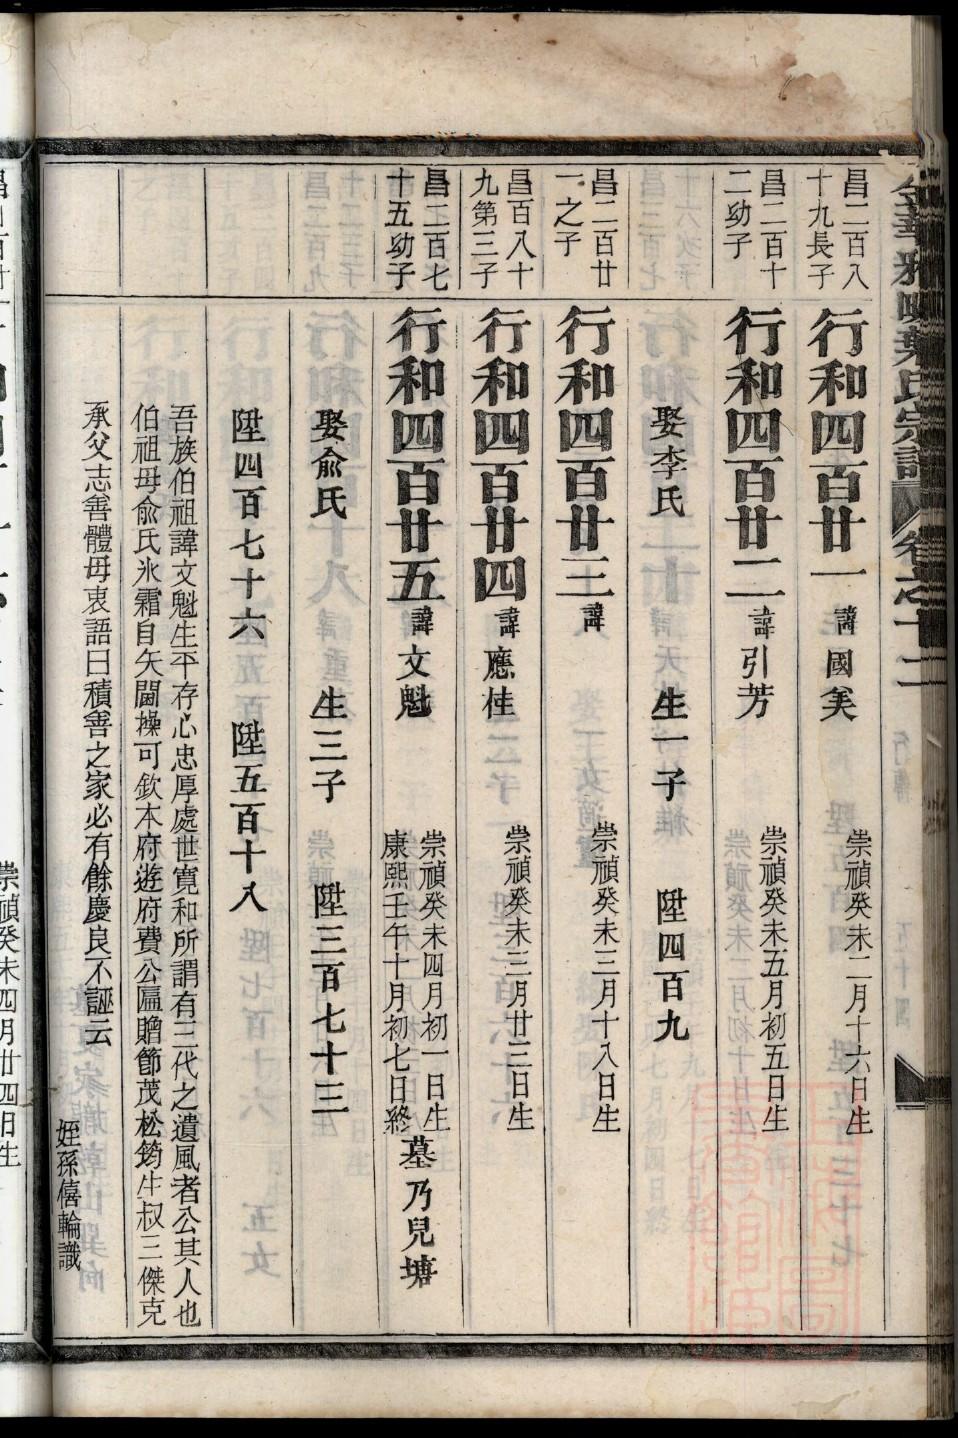 昌二百八十九長子
行和四百廿一 諱國美 崇禎癸未二月十六日生
昌二百十二幼子
行和四百廿二 諱引芳 崇禎癸未五月初五日生
娶李氏 生一子 陞四百九
昌二百廿一之子
行和四百廿三 諱 崇禎癸未三月十八日生
昌百八十九第三子
行和四百廿四 諱應桂 崇禎癸未三月廿三日生
昌二百七十五幼子
行和四百廿五 諱文魁 崇禎癸未四月初一日生
康熙壬午十月初七日終 墓乃兒塘
娶俞氏 生三子 陞三百七十三
陞四百七十六 陞五百十八
吾族伯祖諱文魁生平存心忠厚處世寬和所謂有三代之遺風者公其人也
伯祖母俞氏氷霜自矢閫操可欽本府遊府費公匾贈節茂松筠生叔三傑克
承父志善體母衷語曰積善之家必有餘慶良不誣云
姪孫僖輪識
崇禎癸未四月廿四日生